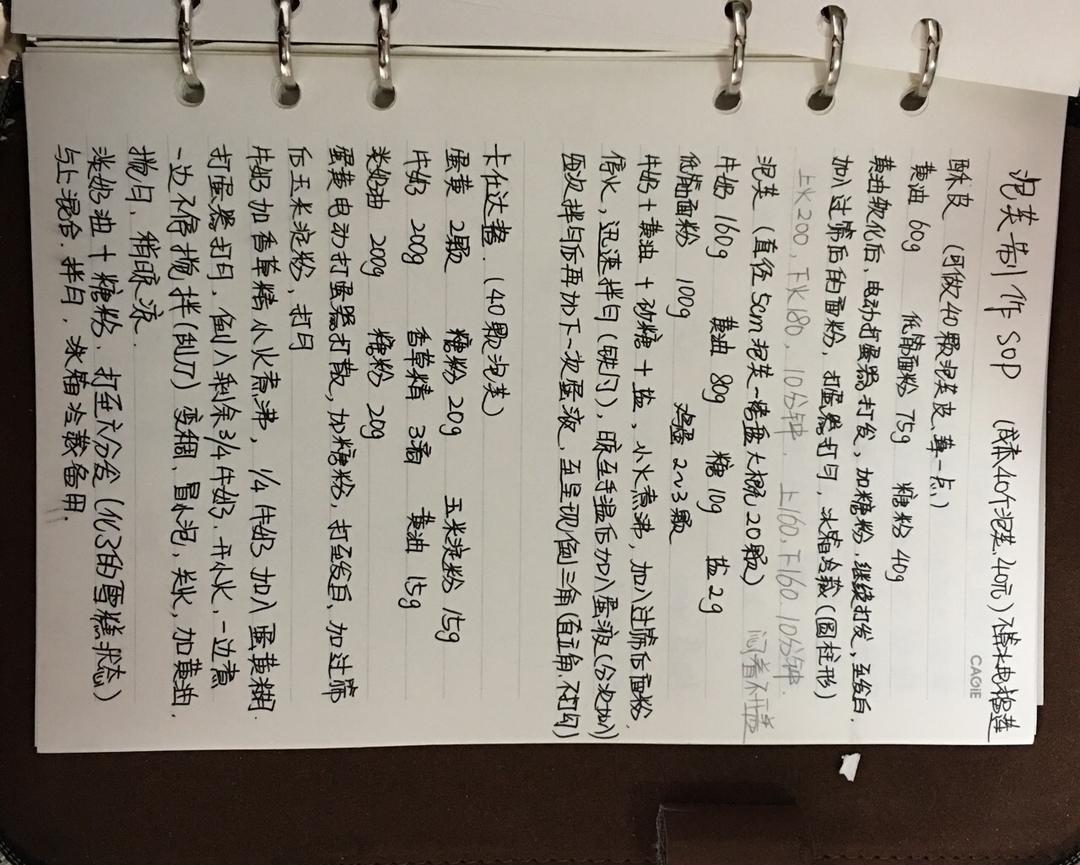 泡芙制作SOP （成本40个泡芙，40元）不算水电榴莲
CAGIE
酥皮 （可做40颗泡芙皮，薄一点）
黄油 60g 低筋面粉 75g 糖粉 40g
黄油软化后，电动打蛋器打发，加糖粉，继续打发，至发白，
加入过筛后的面粉，打蛋器打匀，冰箱冷藏（圆柱形）
上火200，下火180，10分钟， 上160，下160 10分钟.
泡芙（直径5cm泡芙一烤盘大概20颗） 闷着不开盖
牛奶 160g 黄油 80g 糖 10g 盐 2g
低筋面粉 100g 鸡蛋 2~3颗
牛奶＋黄油＋砂糖＋盐，小火煮沸，加入过筛后面粉，
停火，迅速拌匀（快的），晾至手温后加入蛋液（分次加）
每次拌匀后再加下一次蛋液，至呈现倒三角（直立角，不打勾）
卡仕达酱. （40颗泡芙）
蛋黄 2颗 糖粉 20g 玉米淀粉 15g
牛奶 200g 香草精 3滴 黄油 15g
淡奶油 200g 糖粉 20g
蛋黄电动打蛋器打散，加糖粉，打至发白，加过筛
后玉米淀粉，打匀
牛奶加香草精小火煮沸，1/4牛奶加入蛋黄糊.
打蛋器打匀，倒入剩余3/4牛奶，开小火，一边煮
一边不停搅拌（刮刀）变稠，冒小泡，关火，加黄油，
搅匀，稍晾凉.
淡奶油＋糖粉，打至六分发（化了的雪糕状态）
与上混合，拌匀，冰箱冷藏备用.